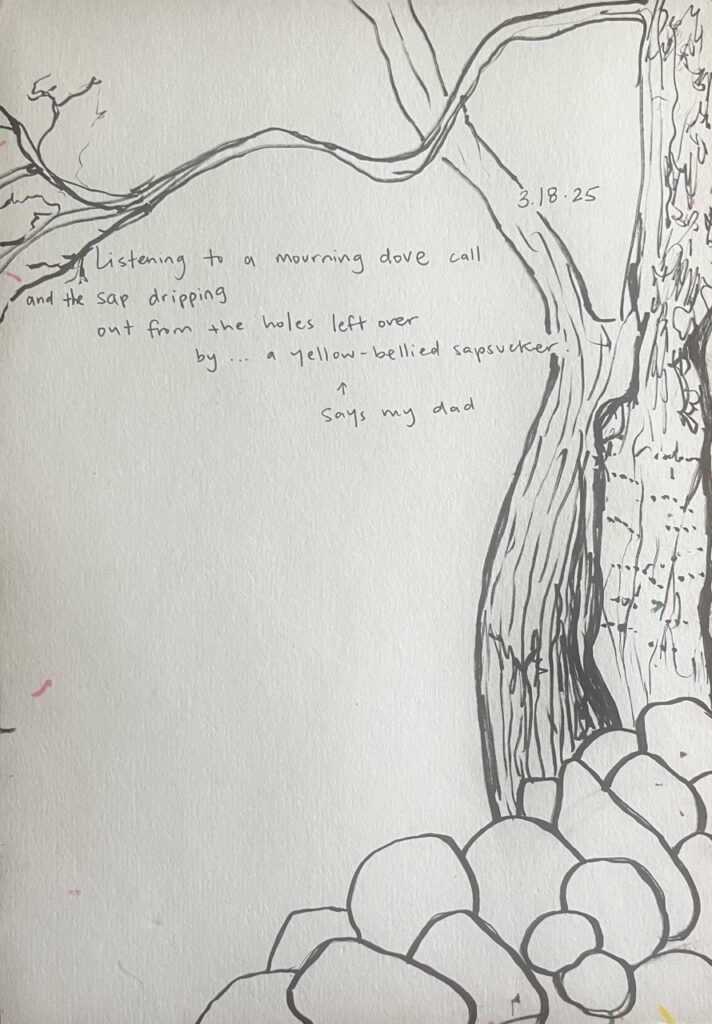 3.18.25
Listening to a mourning dove call
and the sap dripping
out from the holes left over
by ... a yellow-bellied sapsucker.
↑
says my dad